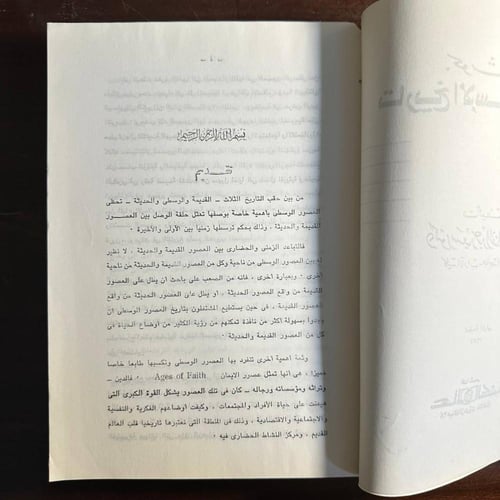 - ١ -
بسم الله الرحمن الرحيم
تقديم
من بين حقب التاريخ الثلاث - القديمة والوسطى والحديثة - تحظى
العصور الوسطى بأهمية خاصة بوصفها تمثل حلقة الوصل بين العصور
القديمة والحديثة ، وذلك بحكم توسطها زمنيا بين الأولى والأخيرة .
فالتباعد الزمنى والحضارى بين العصور القديمة والحديثة ، لا نظير
له بين العصور الوسطى من ناحية وكل من العصور القديمة والحديثة من ناحية
أخرى . وبعبارة أخرى ، فانه من الصعب على باحث أن يطل على العصور
القديمة من واقع العصور الحديثة ، أو يطل على العصور الحديثة من واقع
العصور القديمة ، فى حين يستطيع المشتغلون بتاريخ العصور الوسطى أن
يجدوا بسهولة أكثر من نافذة تمكنهم من رؤية الكثير من أوضاع الحياة فى
كل من العصور القديمة والحديثة .
وثمة أهمية أخرى تنفرد بها العصور الوسطى وتكسبها طابعا خاصا
مميزا ، هى أنها تمثل عصور الايمان Ages of Faith فالدين -
وتراثه ومؤسساته ورجاله - كان فى تلك العصور يشكل القوة الكبرى التى
هيمنت على حياة الأفراد والمجتمعات ، وكيفت أوضاعهم الفكرية والنفسية
والاجتماعية والاقتصادية ، وذلك فى المنطقة التى نعتبرها تاريخيا قلب العالم
القديم ، ومركز النشاط الحضارى فيه .